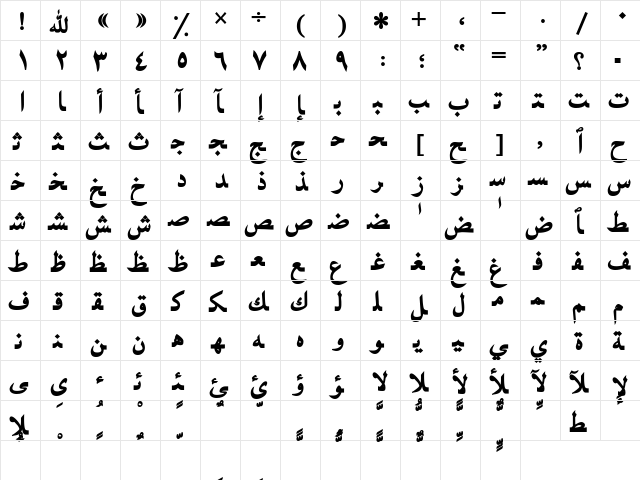 ! ﷲ ( ( ) ) ٪ × ÷ ( ) * + ، ¯ · / ٠
١ ٢ ٣ ٤ ٥ ٦ ٧ ٨ ٩ : ؛ “ = ” ؟ .
ا ﺎ أ ﺄ آ ﺂ إ ﺈ ﺑ ﺒ ﺐ ب ﺗ ﺘ ﺖ ت
ﺛ ﺜ ﺚ ث ﺟ ﺠ ﺞ ج ﺣ ﺤ [ ﺢ ] ٱ ح
ﺧ ﺨ ﺦ خ د ﺪ ذ ﺬ ر ﺮ ز ﺰ ﺳ ﺴ ﺲ س
ﺷ ﺸ ﺶ ش ﺻ ﺼ ﺺ ص ﺿ ﻀ ﺾ ض ط
ط ظ ﻈ ﻆ ظ ﻋ ﻌ ﻊ ع ﻏ ﻐ ﻎ غ ﻓ ﻔ ﻒ
ف ﻗ ﻘ ق ﻛ ﻜ ﻚ ك ﻟ ﻠ ﻞ ل ﻣ ﻤ ﻢ م
ﻧ ﻨ ﻦ ن ﻫ ﻬ ﻪ ه و ﻮ ﻳ ﻴ ﻲ ي ة ﺔ
ﻰ ى ء ﺋ ﺌ ﺊ ئ ؤ ﺆ ﻻ ﻼ ﻷ ﻸ ﻵ ﻶ ﻹ
ﻺ ط